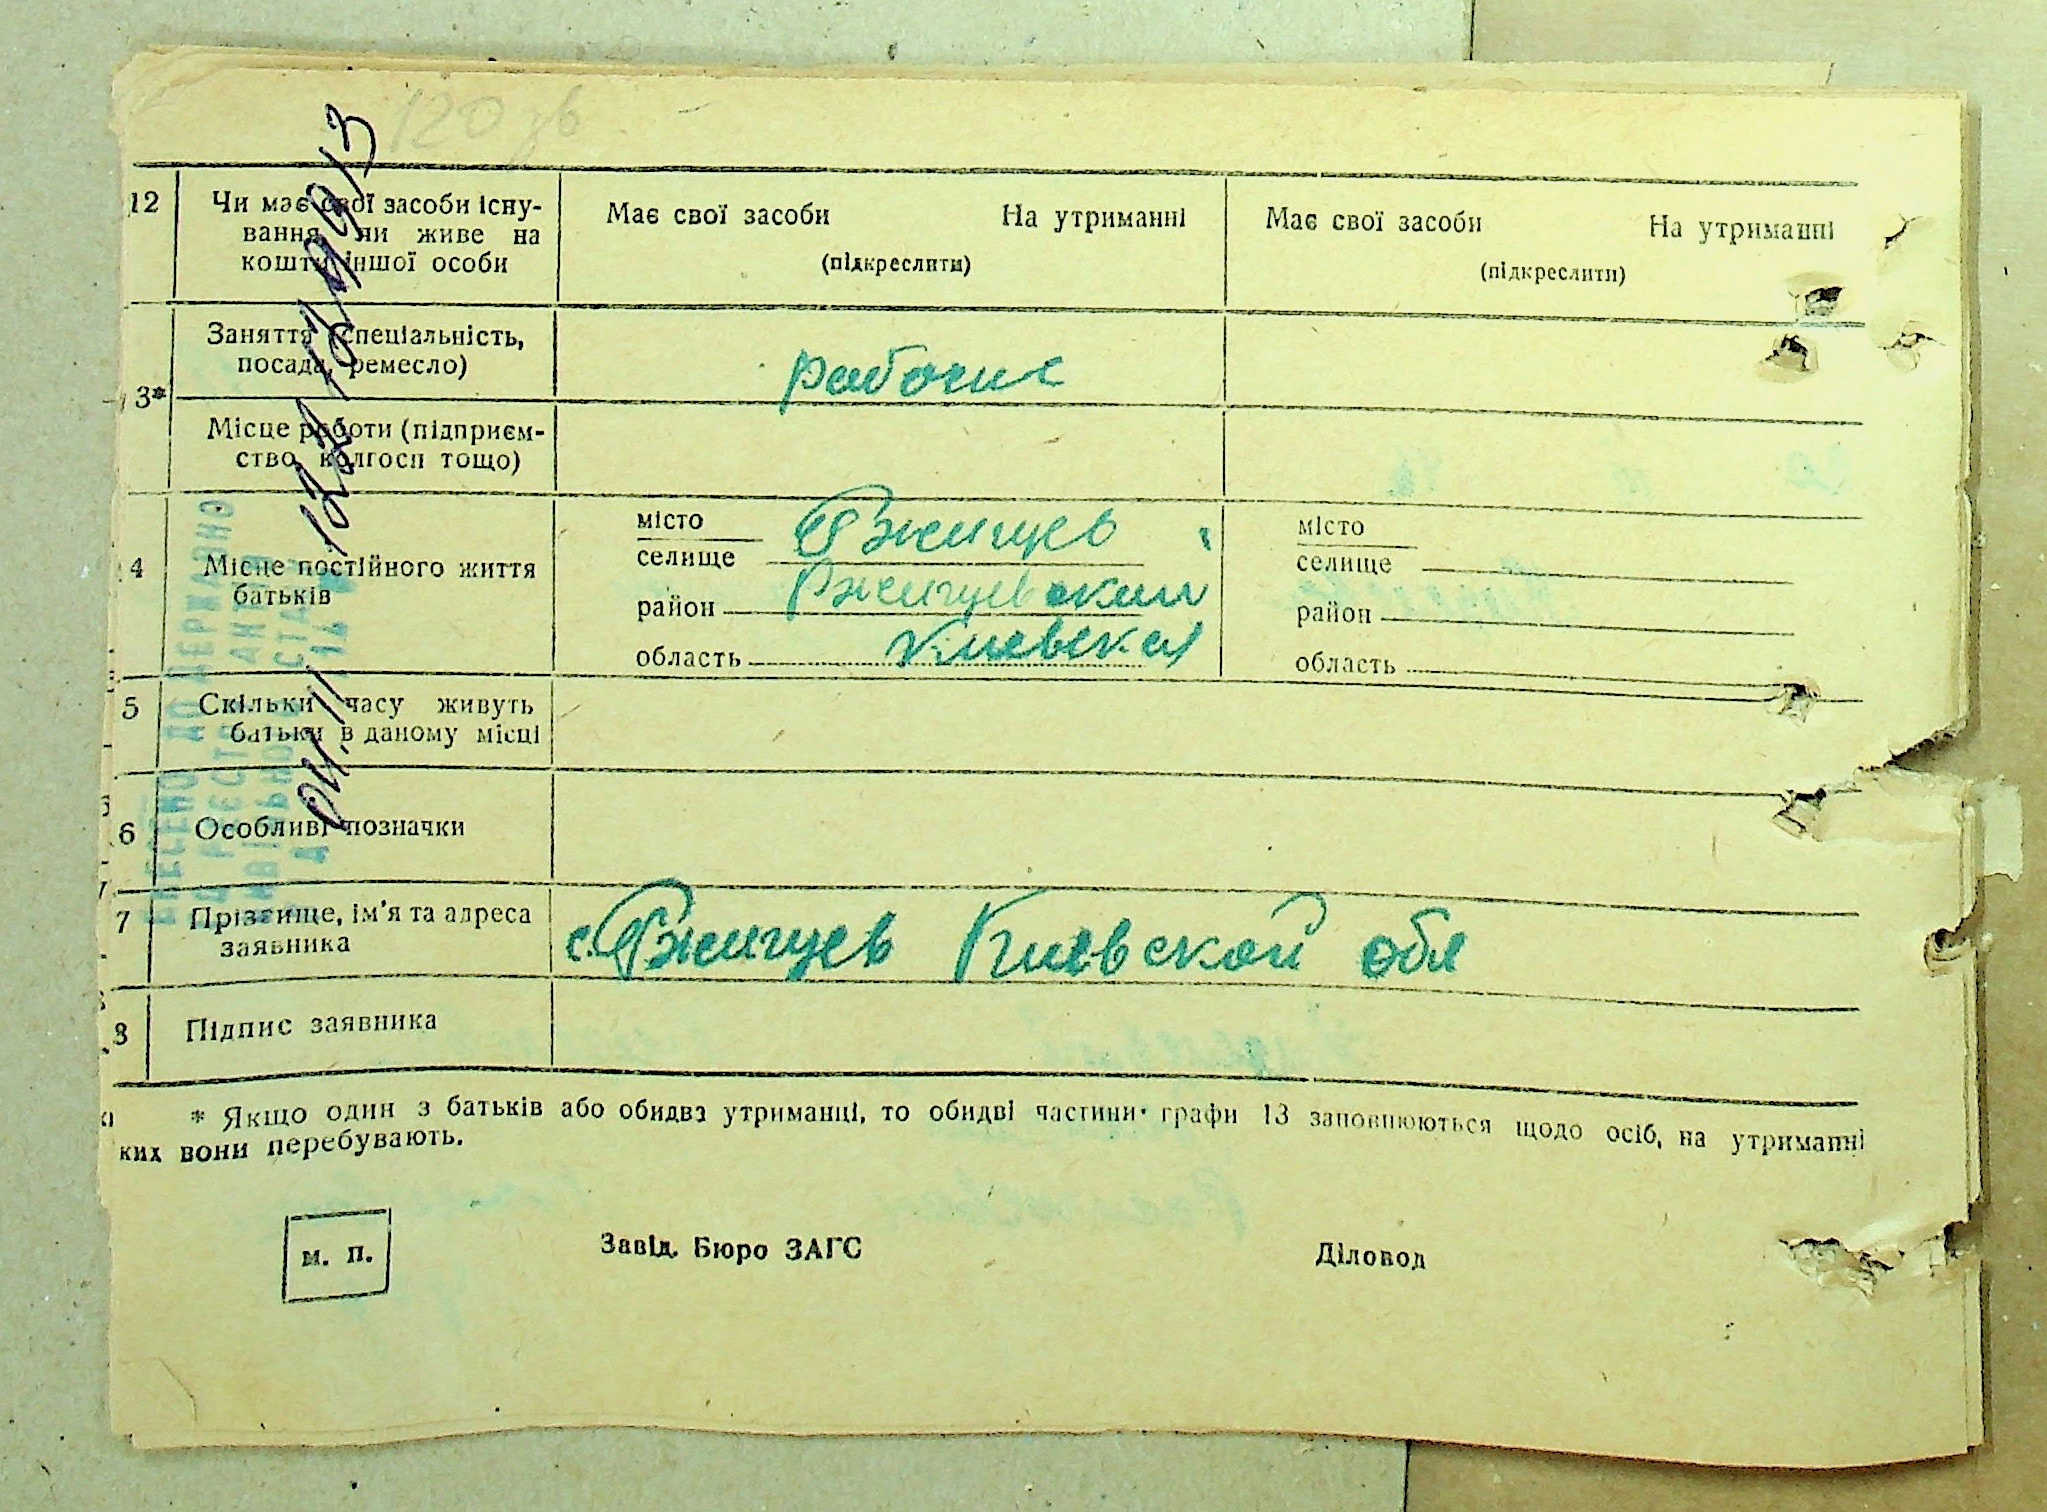 120 зв
12 Чи має свої засоби існу-
вання, чи живе на
кошти іншої особи
Має свої засоби На утриманні
(підкреслити)
Має свої засоби На утриманні
(підкреслити)
3* Заняття (спеціальність,
посада, ремесло)
рабочие
Місце роботи (підприєм-
ство, колгосп тощо)
4 Місце постійного життя
батьків
місто
селище Ржищев
район Ржищевский
область Киевская
місто
селище
район
область
5 Скільки часу живуть
батьки в даному місці
6 Особливі позначки
7 Прізвище, ім'я та адреса
заявника
с. Ржищев Киевской обл
8 Підпис заявника
* Якщо один з батьків або обидва утриманці, то обидві частини графи 13 заповнюються щодо осіб, на утриманні
ких вони перебувають.
м. п.
Завід. Бюро ЗАГС
Діловод
ВНЕСЕНО ДО ДЕРЖАВНО